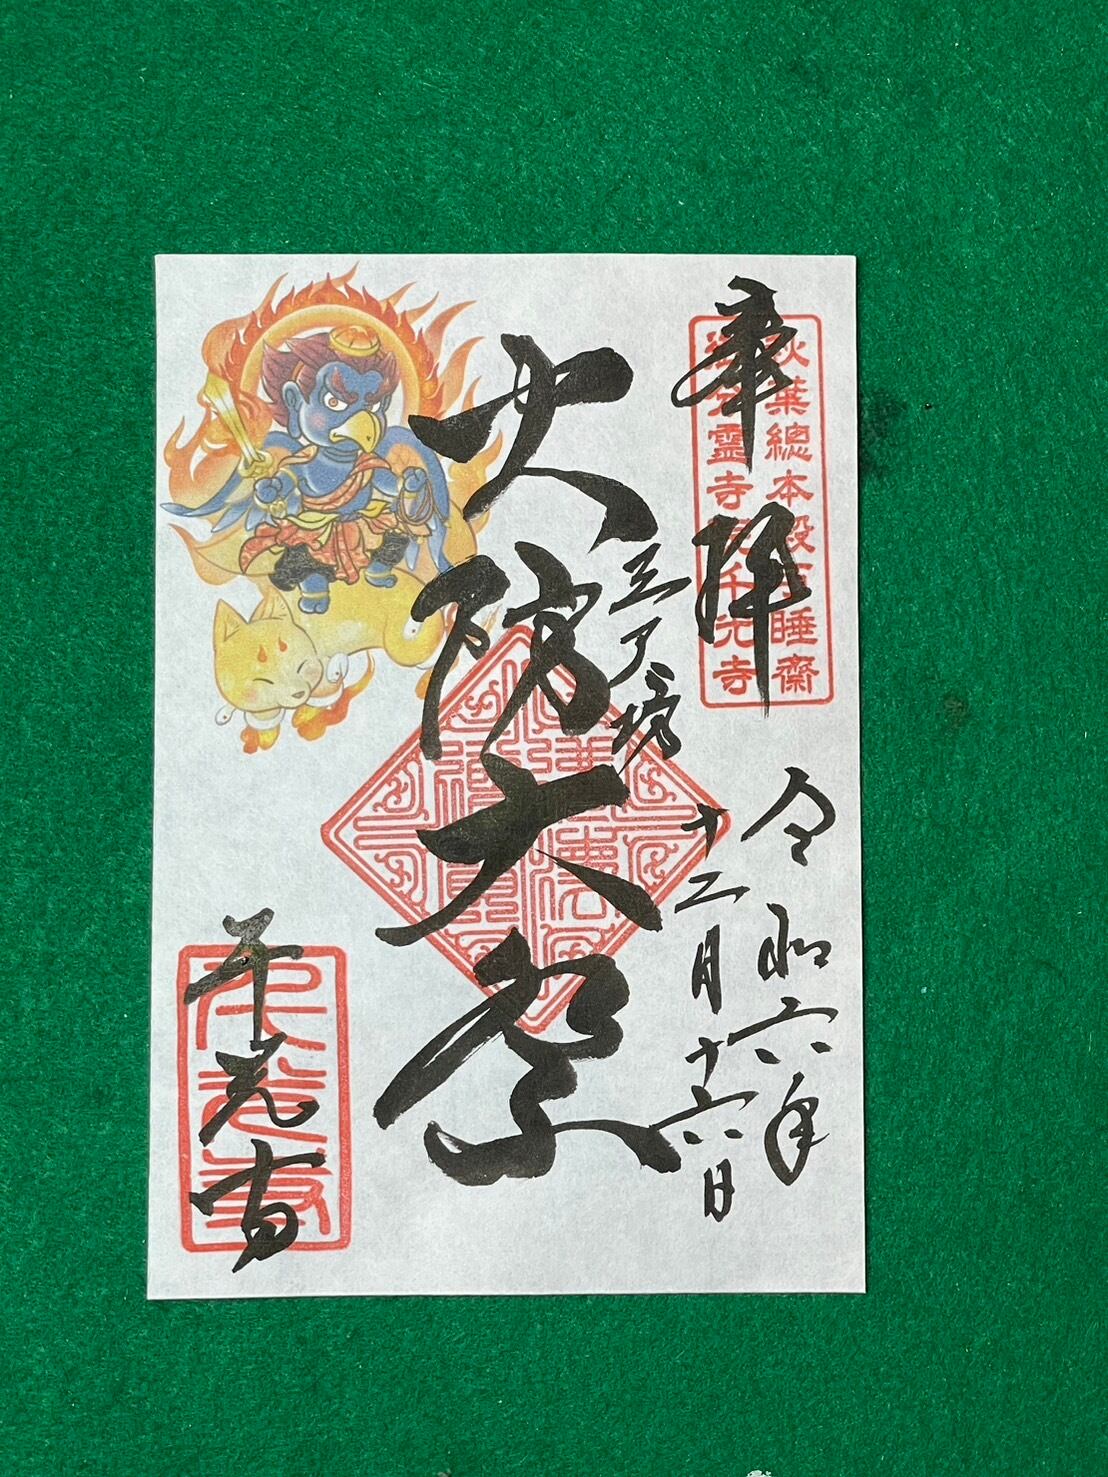 奉拝
秋葉總本殿可睡齋
御分靈寺院千光寺
令和六年
十二月十六日
三尺坊
火防大祭
千光寺
千光寺